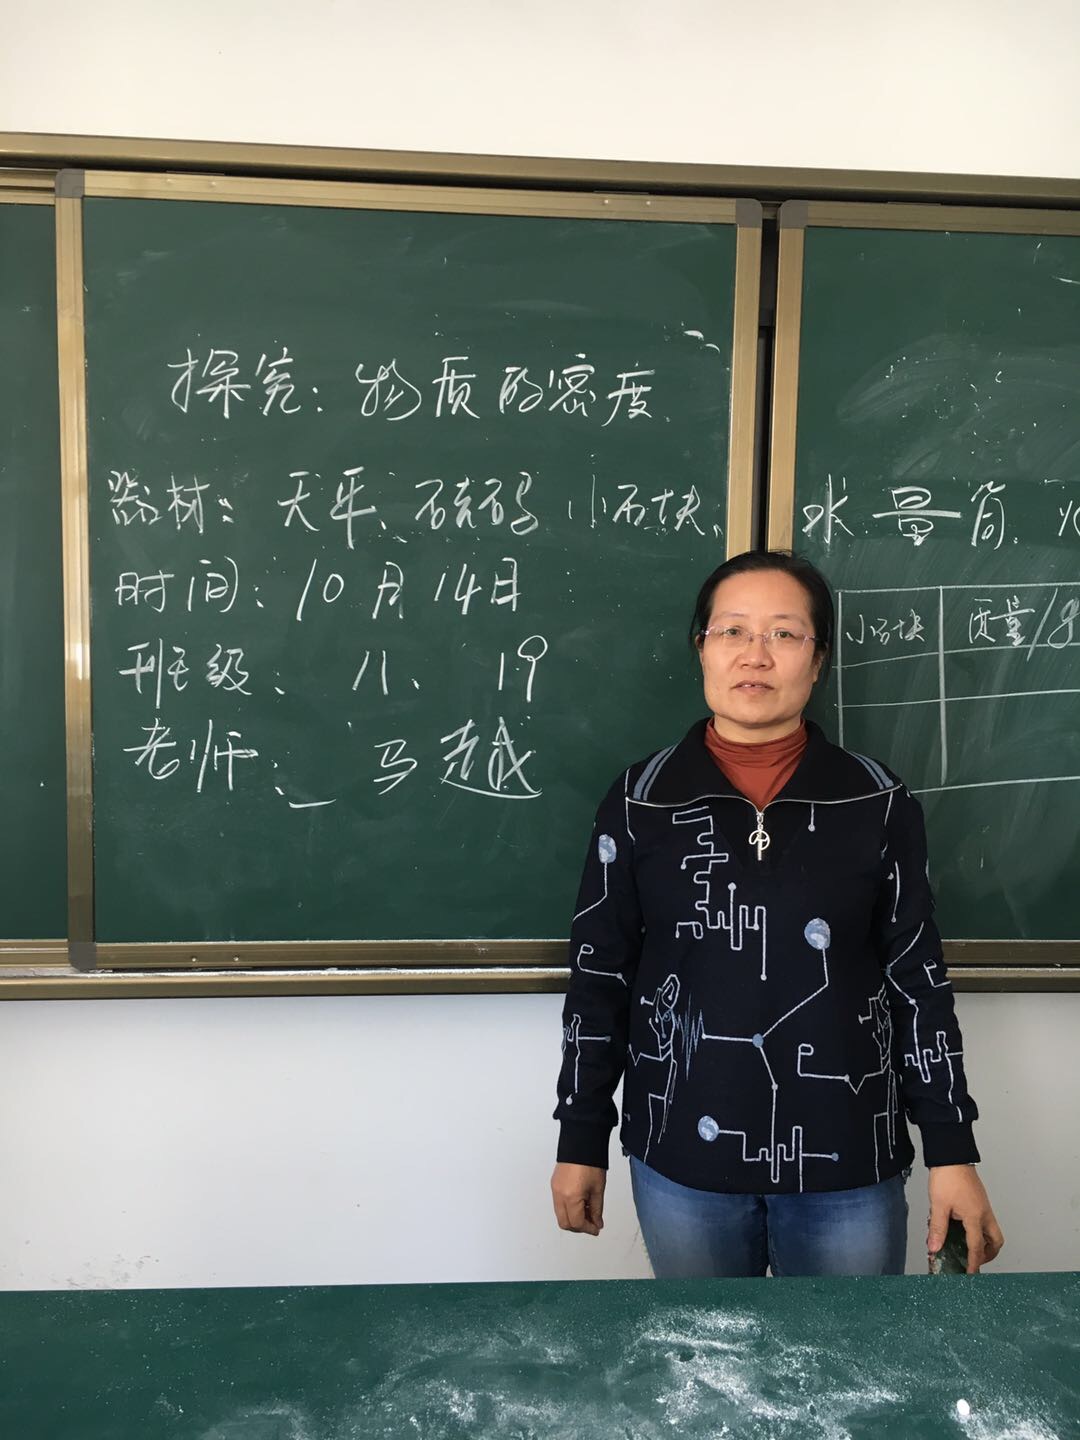 探究:物质的密度
器材:天平、砝码、小石块、水、量筒、
时间:10月14日
班级、八、19
老师:马越
小石块 质量/g